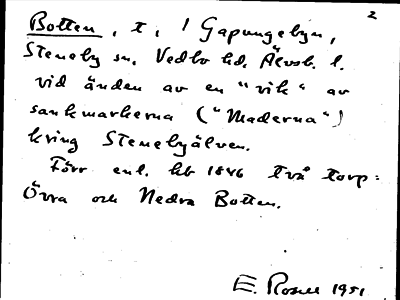 2
Botten, t, i Gapungebyn,
Steneby sn. Vedbo hd. Älvsb. l.
vid änden av en "vik" av
sankmarkerna ("Maderna")
kring Stenebyälven.
Förr enl. hb 1846 två torp:
Övra och Nedra Botten.
E. Rosell 1951